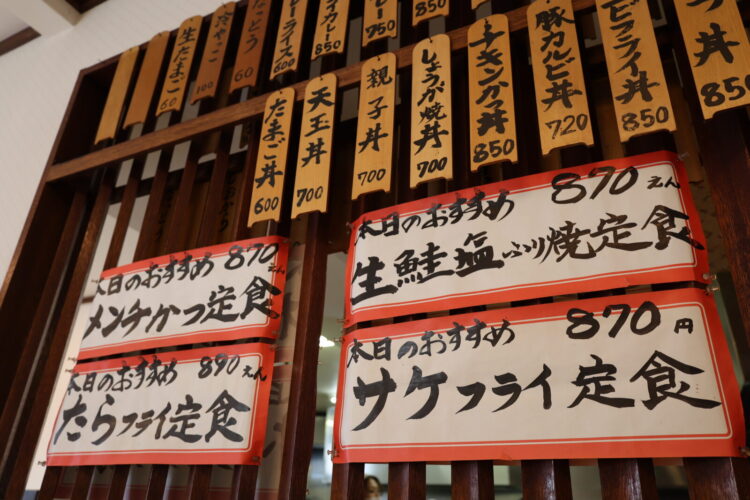 生たまご
60
冷やっこ
100
なっとう
60
ライス
850
カレー
750
850
たまご丼
600
天玉丼
700
親子丼
700
しょうが焼丼
700
チキンかつ丼
850
豚カルビ丼
720
エビフライ丼
850
丼
850
本日のおすすめ 870えん
メンチかつ定食
本日のおすすめ 890えん
たらフライ定食
本日のおすすめ 890えん
生鮭塩ふり焼定食
本日のおすすめ 870円
サケフライ定食